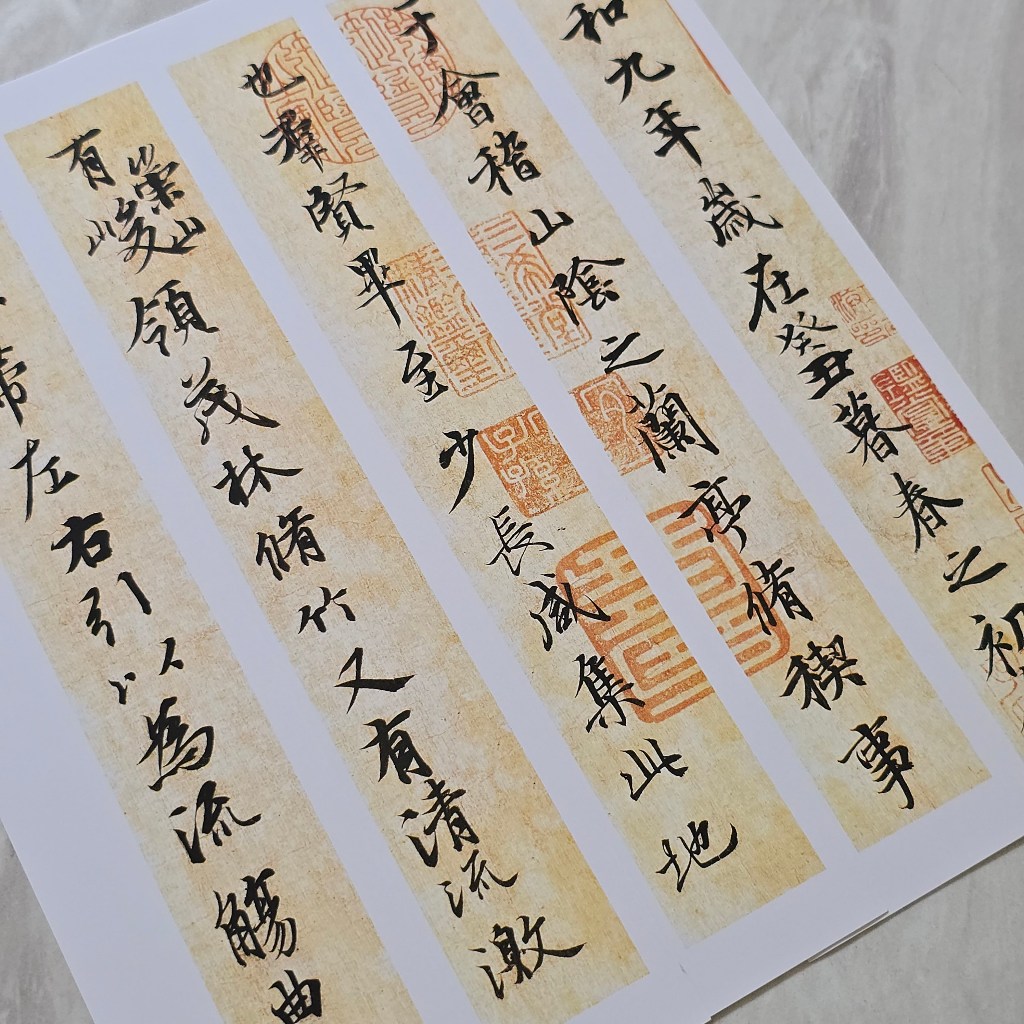 和九年歲在癸丑暮春之初
于會稽山陰之蘭亭脩稧事
也羣賢畢至少長咸集此地
有崇山峻領茂林脩竹又有清流激
帶左右引以為流觴曲